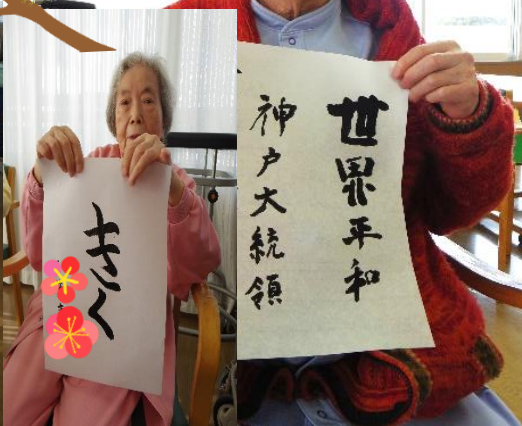 きく
世界平和
神戸大統領